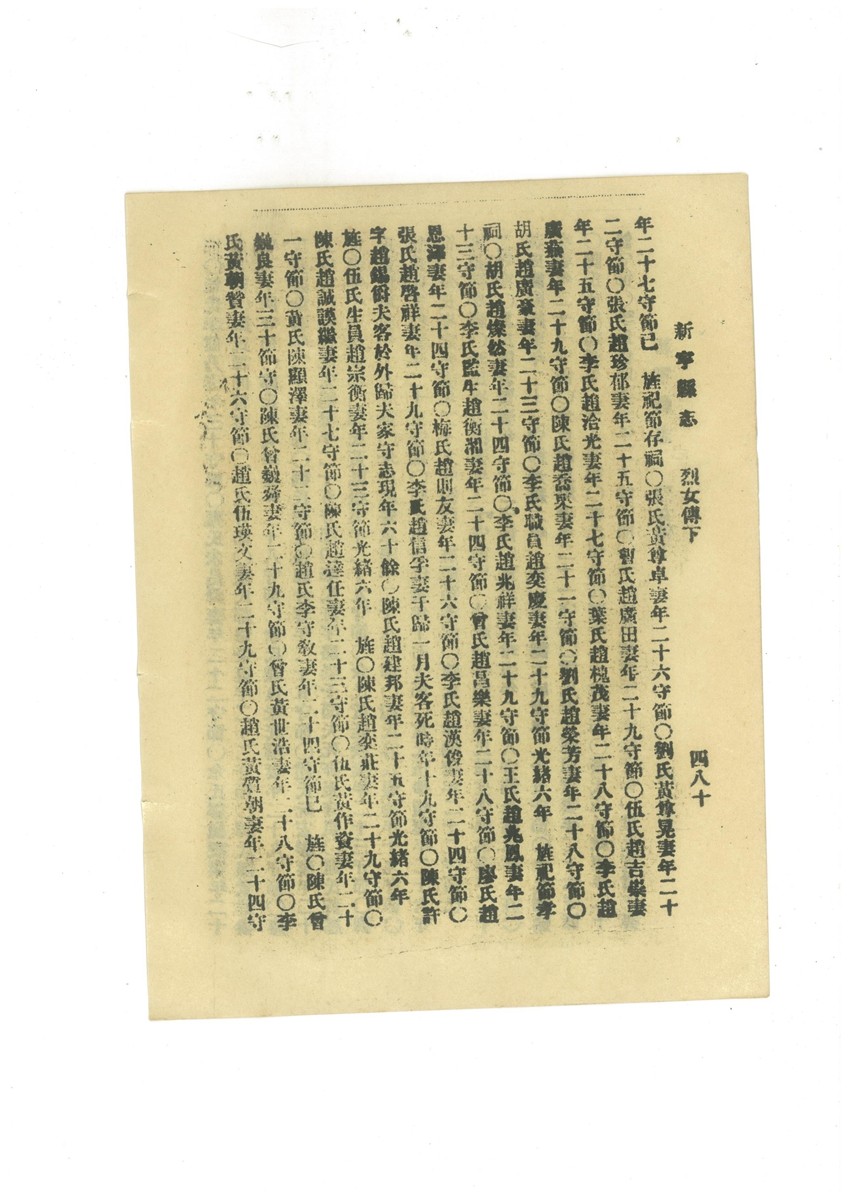 新寧縣志 烈女傳下 四八十
年二十七守節已 旌祀節孝祠○張氏黃尊卓妻年二十六守節○劉氏黃尊晃妻年二十
二守節○張氏趙珍郁妻年二十五守節○曾氏趙廣田妻年二十九守節○伍氏趙吉 妻
年二十五守節○李氏趙洽光妻年二十七守節○葉氏趙槐茂妻年二十八守節○李氏趙
廣燕妻年二十九守節○陳氏趙喬 妻年二十一守節○劉氏趙榮芳妻年二十八守節○
胡氏趙廣豪妻年二十三守節○李氏職員趙奕慶妻年二十九守節光緒六年 旌祀節孝
祠○胡氏趙燦然妻年二十四守節○李氏趙兆祥妻年二十九守節○王氏趙兆鳳妻年二
十三守節○李氏監生趙衡湘妻年二十四守節○曾氏趙昌樂妻年二十八守節○廖氏趙
恩澤妻年二十四守節○梅氏趙則友妻年二十六守節○李氏趙漢俊妻年二十四守節○
張氏趙啓祥妻年二十九守節○李氏趙信孚妻于歸一月夫客死時年十九守節○陳氏許
字趙錫爵夫客於外歸夫家守志現年六十餘○陳氏趙建邦妻年二十五守節光緒六年
旌○伍氏生員趙宗衡妻年二十三守節光緒六年 旌○陳氏趙奕莊妻年二十九守節○
陳氏趙誠謨繼妻年二十七守節○陳氏趙達任妻年二十三守節○伍氏黃作資妻年二十
一守節○黃氏陳顯澤妻年二十二守節○趙氏李守敎妻年二十四守節已 旌○陳氏曾
巍良妻年三十節守○陳氏曾巍舜妻年二十九守節○曾氏黃世浩妻年二十八守節○李
氏黃朝贊妻年二十六守節○趙氏伍瑛文妻年二十九守節○趙氏黃質朝妻年二十四守